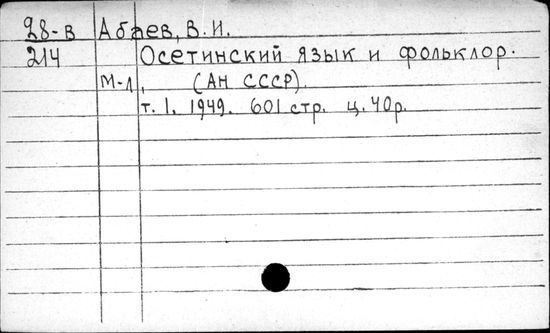 28-в Абаев, В.И.
214 Осетинский язык и фольклор.
М-Л, (АН СССР).
т. 1. 1949. 601 стр. ц. 40р.